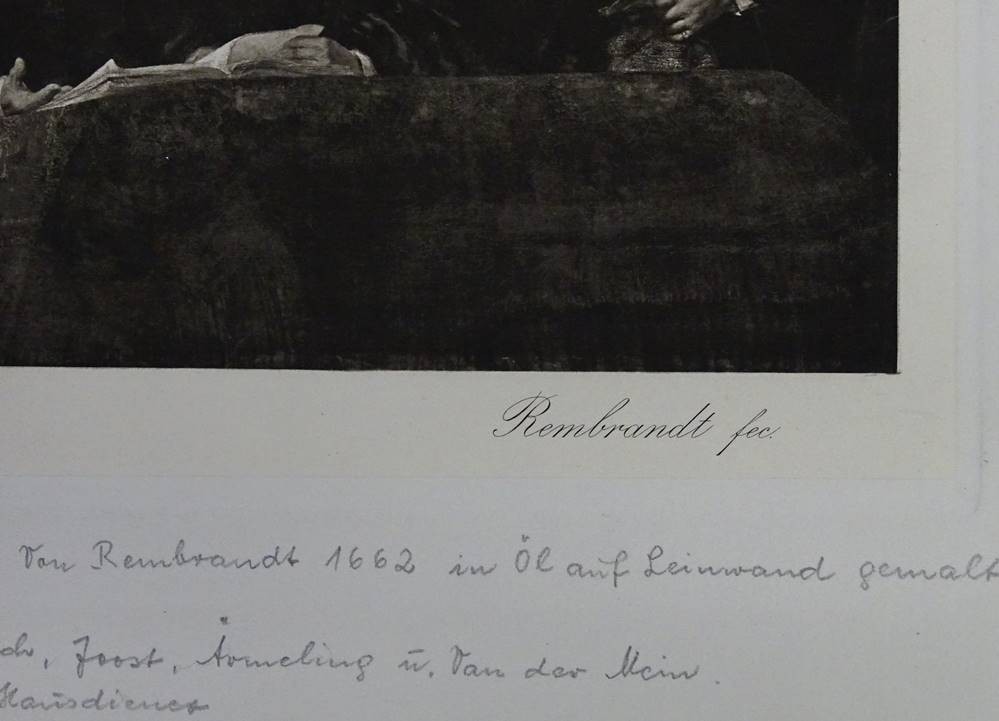 Rembrandt fec.
Von Rembrandt 1662 in Öl auf Leinwand gemalt
ch, Joost, Ärmeling u. Van der Mein.
Hausdiener